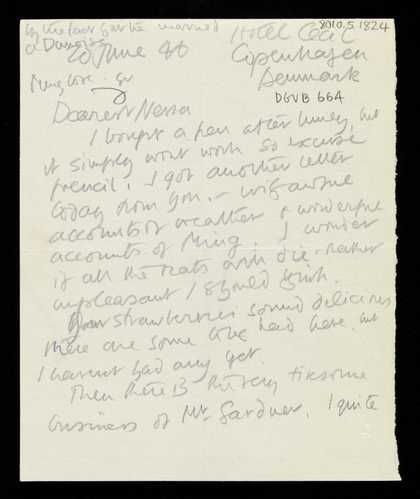 by the fact that he married
a Danoise
20 June 86
Hotel Cecil
Copenhagen
Denmark
8010.5.1824
DGVB 66A
Ming love.
Dearest Nessa
I bought a pen after lunch, but
it simply wont work so excuse
pencil. I got another letter
today from you, - with awful
accounts of weather & wonderful
accounts of Ming. I wonder
if all the rats will die - rather
unpleasant I should think.
Your strawberries sound delicious
there are some to be had here, but
I havent had any yet.
Then there is the very tiresome
business of Mr. Gardner. I quite